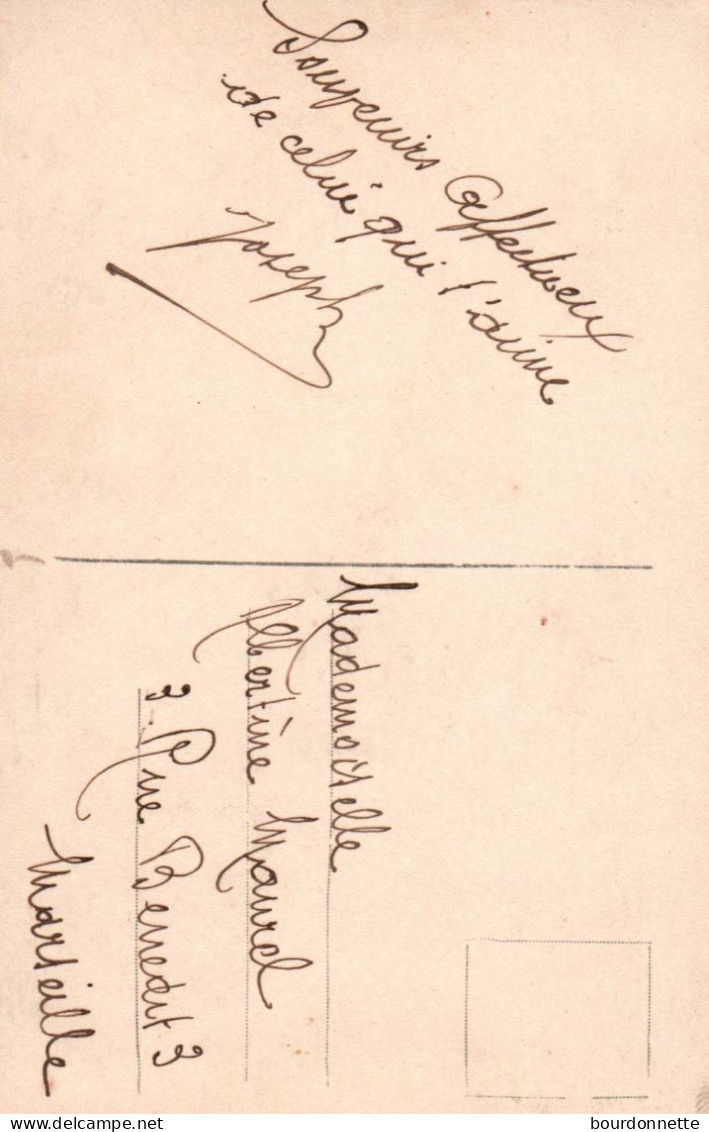 Souvenirs Affectueux
de celui qui t'aime
Joseph
Mademoiselle
Albertine Maurel
3. Rue Benedit 3
Marseille
delcampe.net
bourdonnette